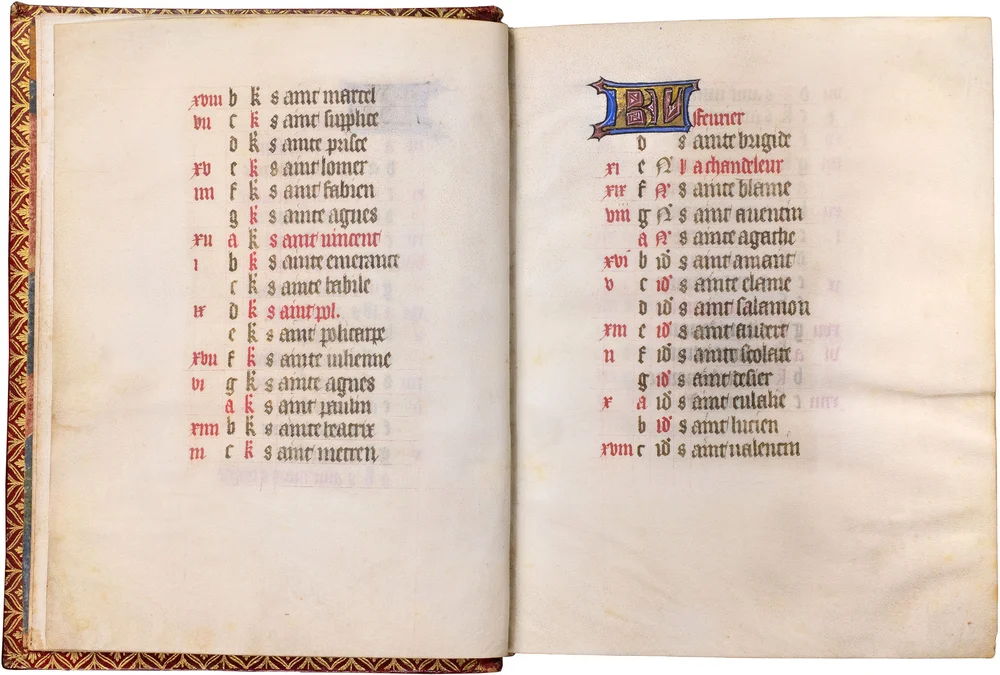 xviii b k Saint martel
vii c k Saint supplice
d k Sainte prisce
xv e k Saint lomer
iiii f k Saint fabien
g k Sainte agnes
xii a k Saint vincent
i b k Sainte emerance
c k Sainte babile
ix d k Saint pol.
e k Saint policarpe
xvii f k Sainte iulienne
vi g k Sainte agnes
a k Saint paulin
xiiii b k Sainte beatrix
iii c k Saint metren
feurier
d Sainte brigide
xi e N La chandeleur
xix f N Sainte blaiue
viii g N Saint auentin
a N Sainte agathe
xvi b id Saint amant
v c id Sainte elaine
d id Saint salamon
xiii e id Saint aubert
ii f id Sainte scolace
g id Saint desier
x a id Saint eulalie
b id Saint lucien
xviii c id Saint ualentin